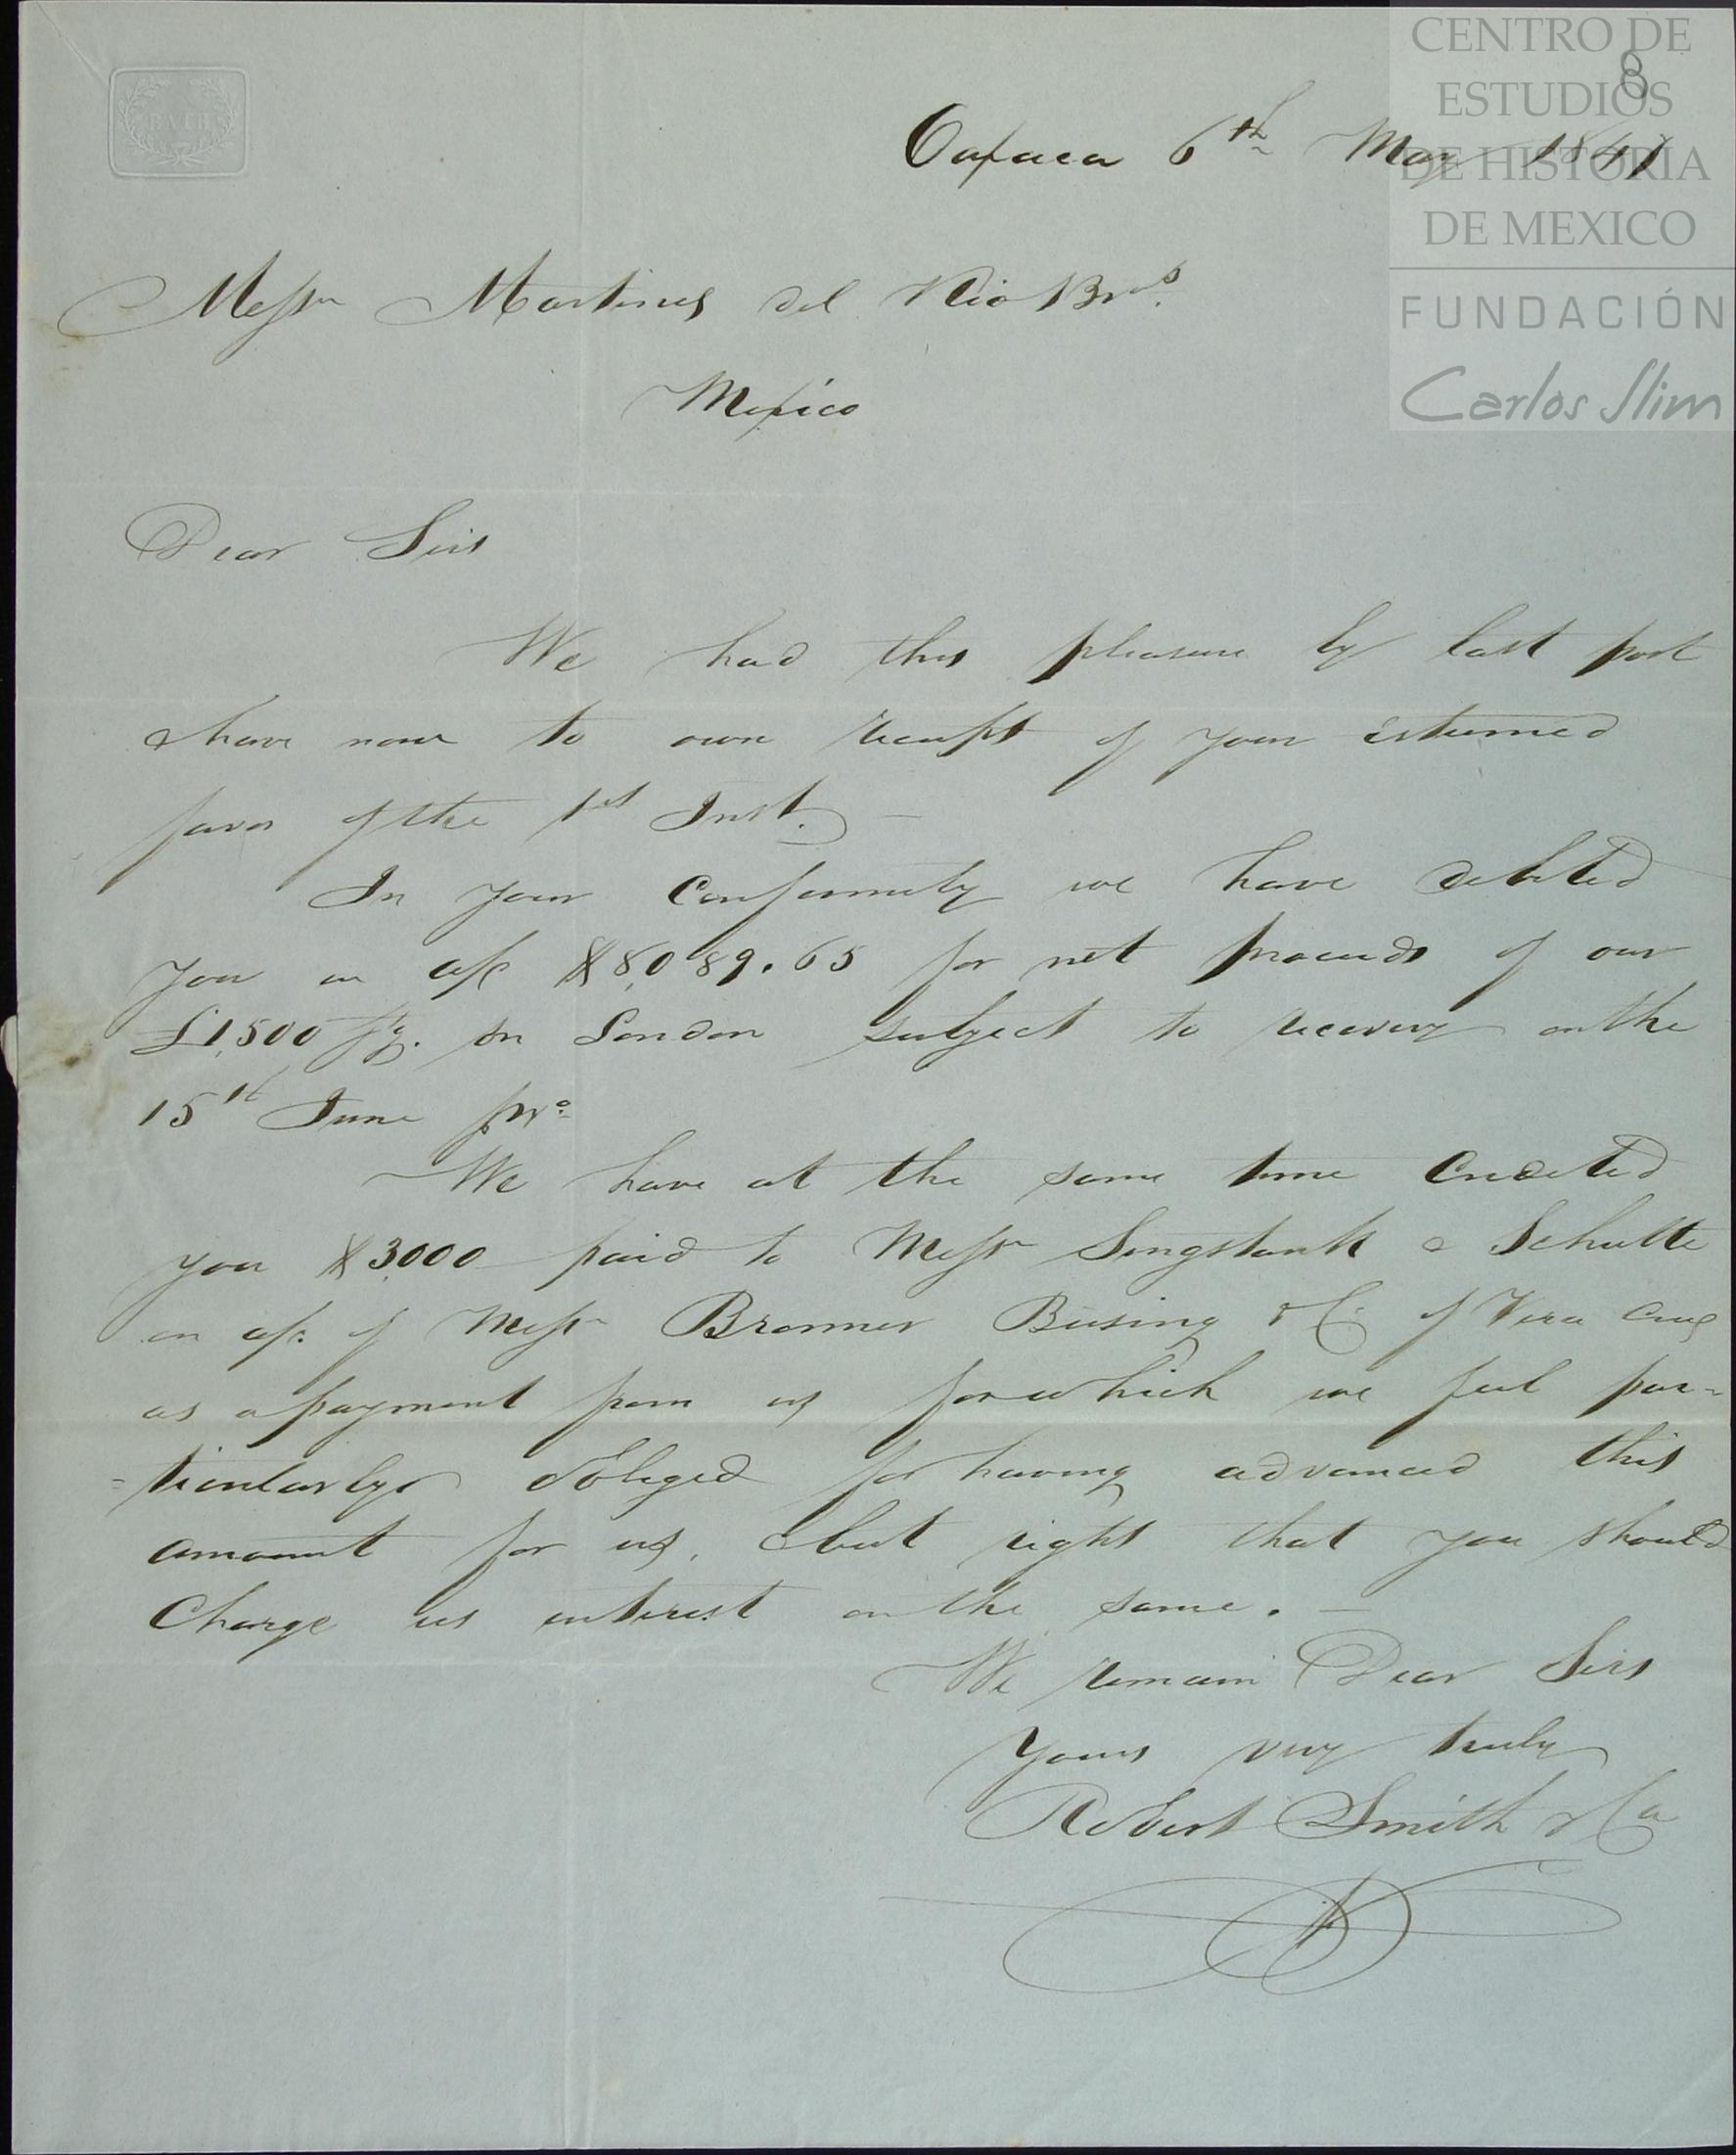 CENTRO DE
ESTUDIOS
DE HISTORIA
DE MEXICO
FUNDACIÓN
Carlos Slim
8
BATH
Oaxaca 6th May 1847
Messrs Martinez del Rio Bros.
Mexico
Dear Sirs
We had this pleasure by last post
& have now to own receipt of your esteemed
favor of the 1st Inst. —
In your Conformity we have debited
you in a/c $8,089.65 for net proceeds of our
£1,500 on London subject to recovery on the
15th June pro
We have at the same time Credited
you $3,000 paid to Messrs & Schutte
on a/c. of Messrs Brommer Busing & Co of Vera Cruz
as a payment from us for which we feel par-
=ticularly obliged for having advanced this
amount for us, & but right that you should
Charge us interest on the same. —
We remain Dear Sirs
Yours very truly
Robert Smith & Co